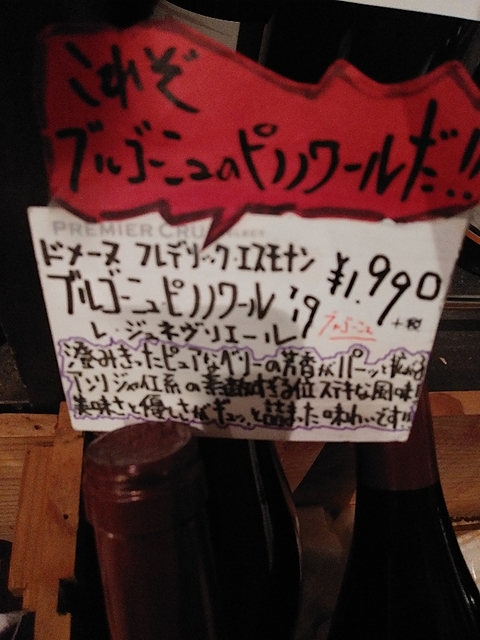 これぞ
ブルゴーニュのピノノワールだ!!
PREMIER CRU SELECT
ドメーヌ フレデリック・エスモナン
ブルゴーニュ・ピノノワール '19
¥1,990
+税
レ・ジュネヴリエール
ブルゴーニュ
澄みきったピュアなベリーの芳香がパーッと拡がる
シャイエ系の素敵すぎる位ステキな風味!
美味さと優しさがギュッと詰まった味わいです!!